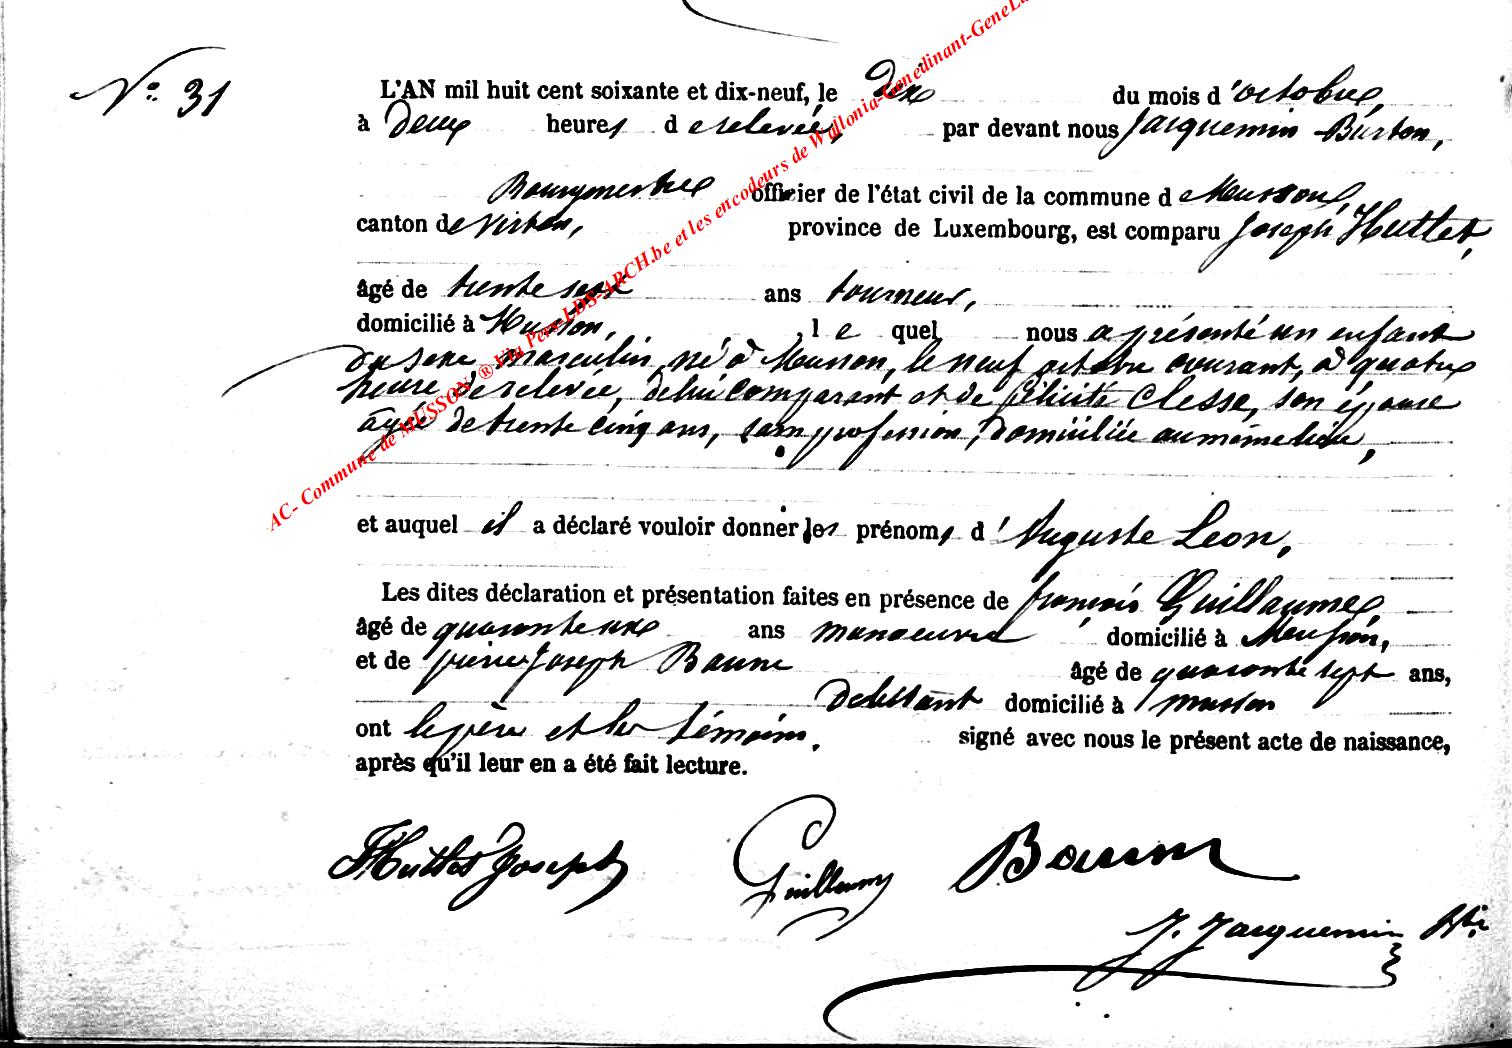 N° 31
L'AN mil huit cent soixante et dix-neuf, le Dix du mois d'octobre,
à Deux heures de relevée, par devant nous Jacquemin Burton,
Bourgmestre officier de l'état civil de la commune de Musson,
canton de Virton, province de Luxembourg, est comparu Joseph Huttet,
âgé de trente ans tourneur,
domicilié à Musson, le quel nous a présenté un enfant
du sexe masculin, né à Musson, le neuf octobre courant, à quatre
heure de relevée, de lui comparant et de félicité Clesse, son épouse
âgée de trente cinq ans, sans profession, domiciliée au même lieu,
et auquel il a déclaré vouloir donner les prénoms d'Auguste Leon,
Les dites déclaration et présentation faites en présence de françois Guillaume,
âgé de quarante ans manoeuvre domicilié à Musson,
et de pierre Joseph Baum âgé de quarante sept ans,
debitant domicilié à musson
ont le père et les témoins. signé avec nous le présent acte de naissance,
après qu'il leur en a été fait lecture.
Joseph Guillaume Baum
J. Jacquemin
AC- Commune de MUSSON ® Via Pers-LDS-ARCH.be et les encodeurs de Wallonia-Genedinant-GeneLu